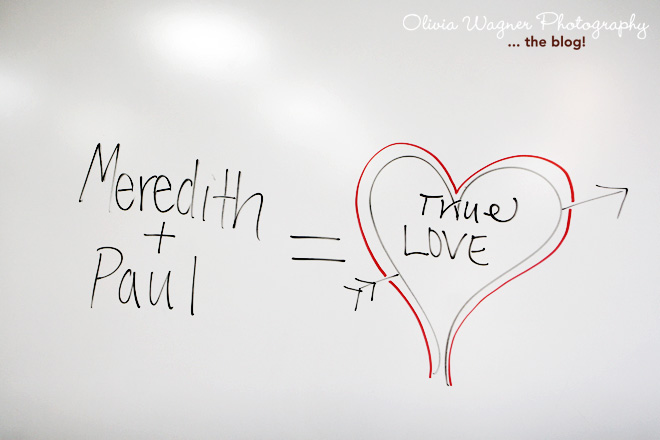 Olivia Wagner Photography
... the blog!
Meredith
+
Paul
=
True
LOVE